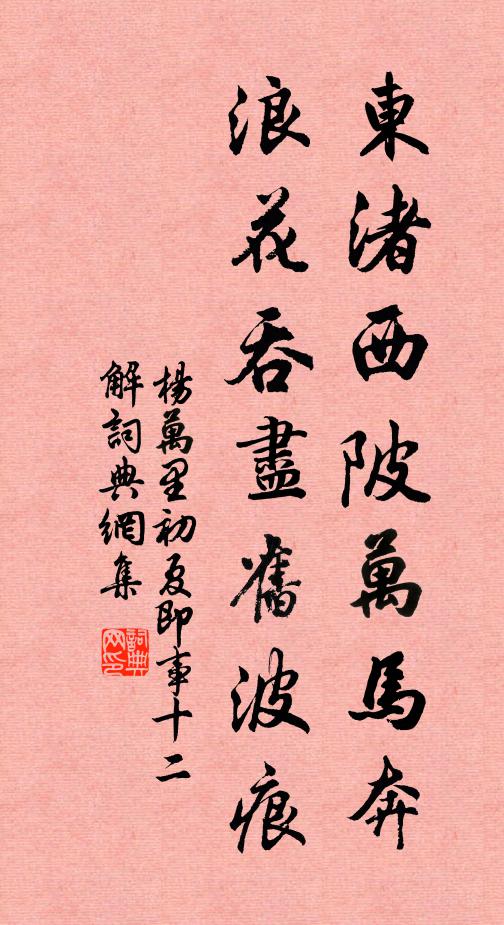 東渚西陂萬馬奔
浪花吞盡舊波痕
楊萬里初夏即事十二
解詞典網集
詞典网印